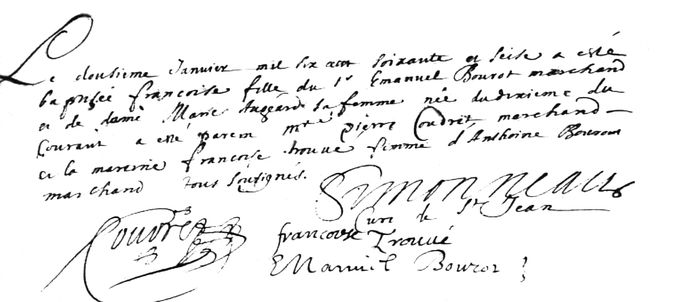 Le dousieme Janvier mil six cent soixante et seise a esté
baptisée francoise fille du Sr Emanuel Bourot marchand
et de dame Marie sa femme née du dixieme du
Courant a esté parein mre pierre Coudret marchand
et la mareine francoise trouvé femme d'Anthoine Bourot
marchand tous sousignes.
Simonneau
Curé de St Jean
francoise Trouvé
Emanuel Bourot